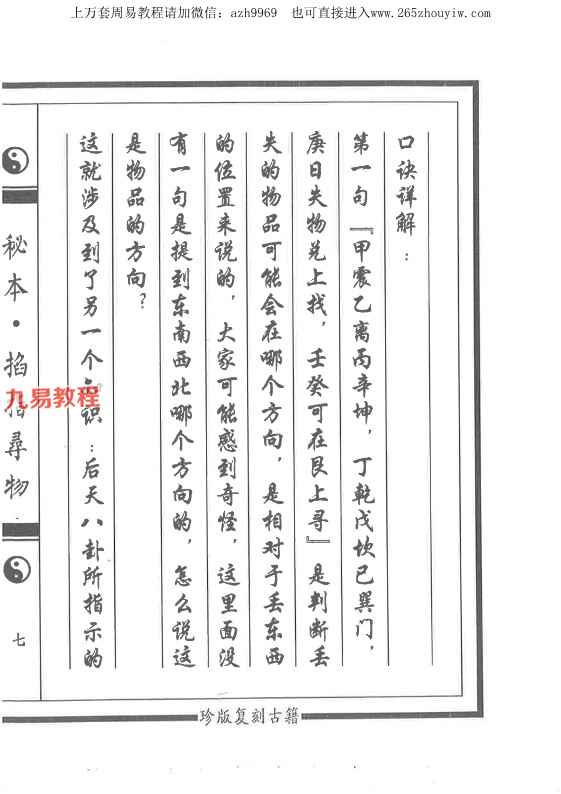 上万套周易教程请加微信：azh9969 也可直接进入www.265zhouyiw.com
口诀详解：
第一句『甲震乙离丙辛坤，丁乾戊坎己巽门，
庚日失物兑上找，壬癸可在艮上寻』是判断丢
失的物品可能会在哪个方向，是相对于丢东西
的位置来说的，大家可能感到奇怪，这里面没
有一句是提到东南西北哪个方向的，怎么说这
是物品的方向？
这就涉及到了另一个识：后天八卦所指示的
秘本·掐尋物
九易教程
七
珍版复刻古籍